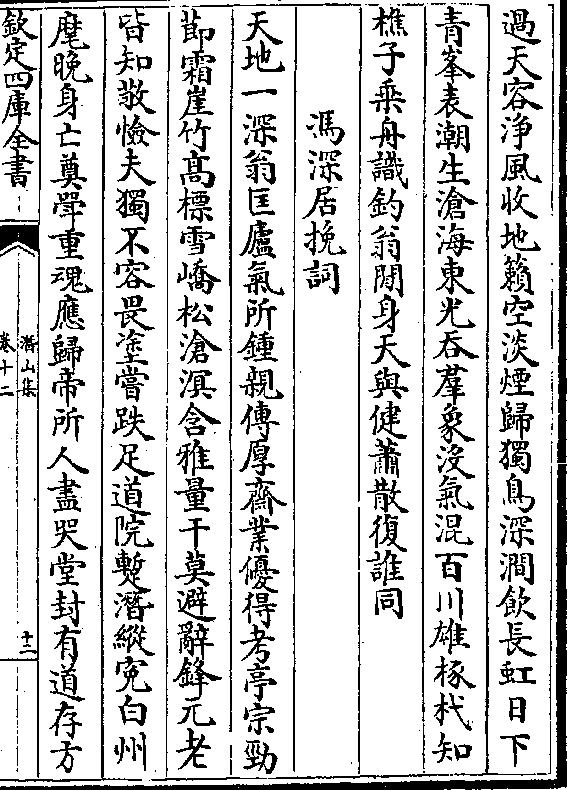 過天容浄風收地籟空淡煙歸獨鳥深澗飲長虹日下
青峯表潮生滄海東光吞羣象沒氣混百川雄椓杙知
樵子乗舟識釣翁閒身天與健蕭散復誰同
馮深居挽詞
天地一深翁匡廬氣所鍾親傳厚齋業優得考亭宗勁
莭霜崖竹髙標雪嶠松滄溟含雅量干莫避辭鋒元老
皆知敬憸夫獨不容畏塗嘗跌足道院蹔潛縱寃白州
麾晚身亡奠斝重魂應歸帝所人盡哭堂封有道存方
欽定四庫全書
潛山集
卷十二
十二